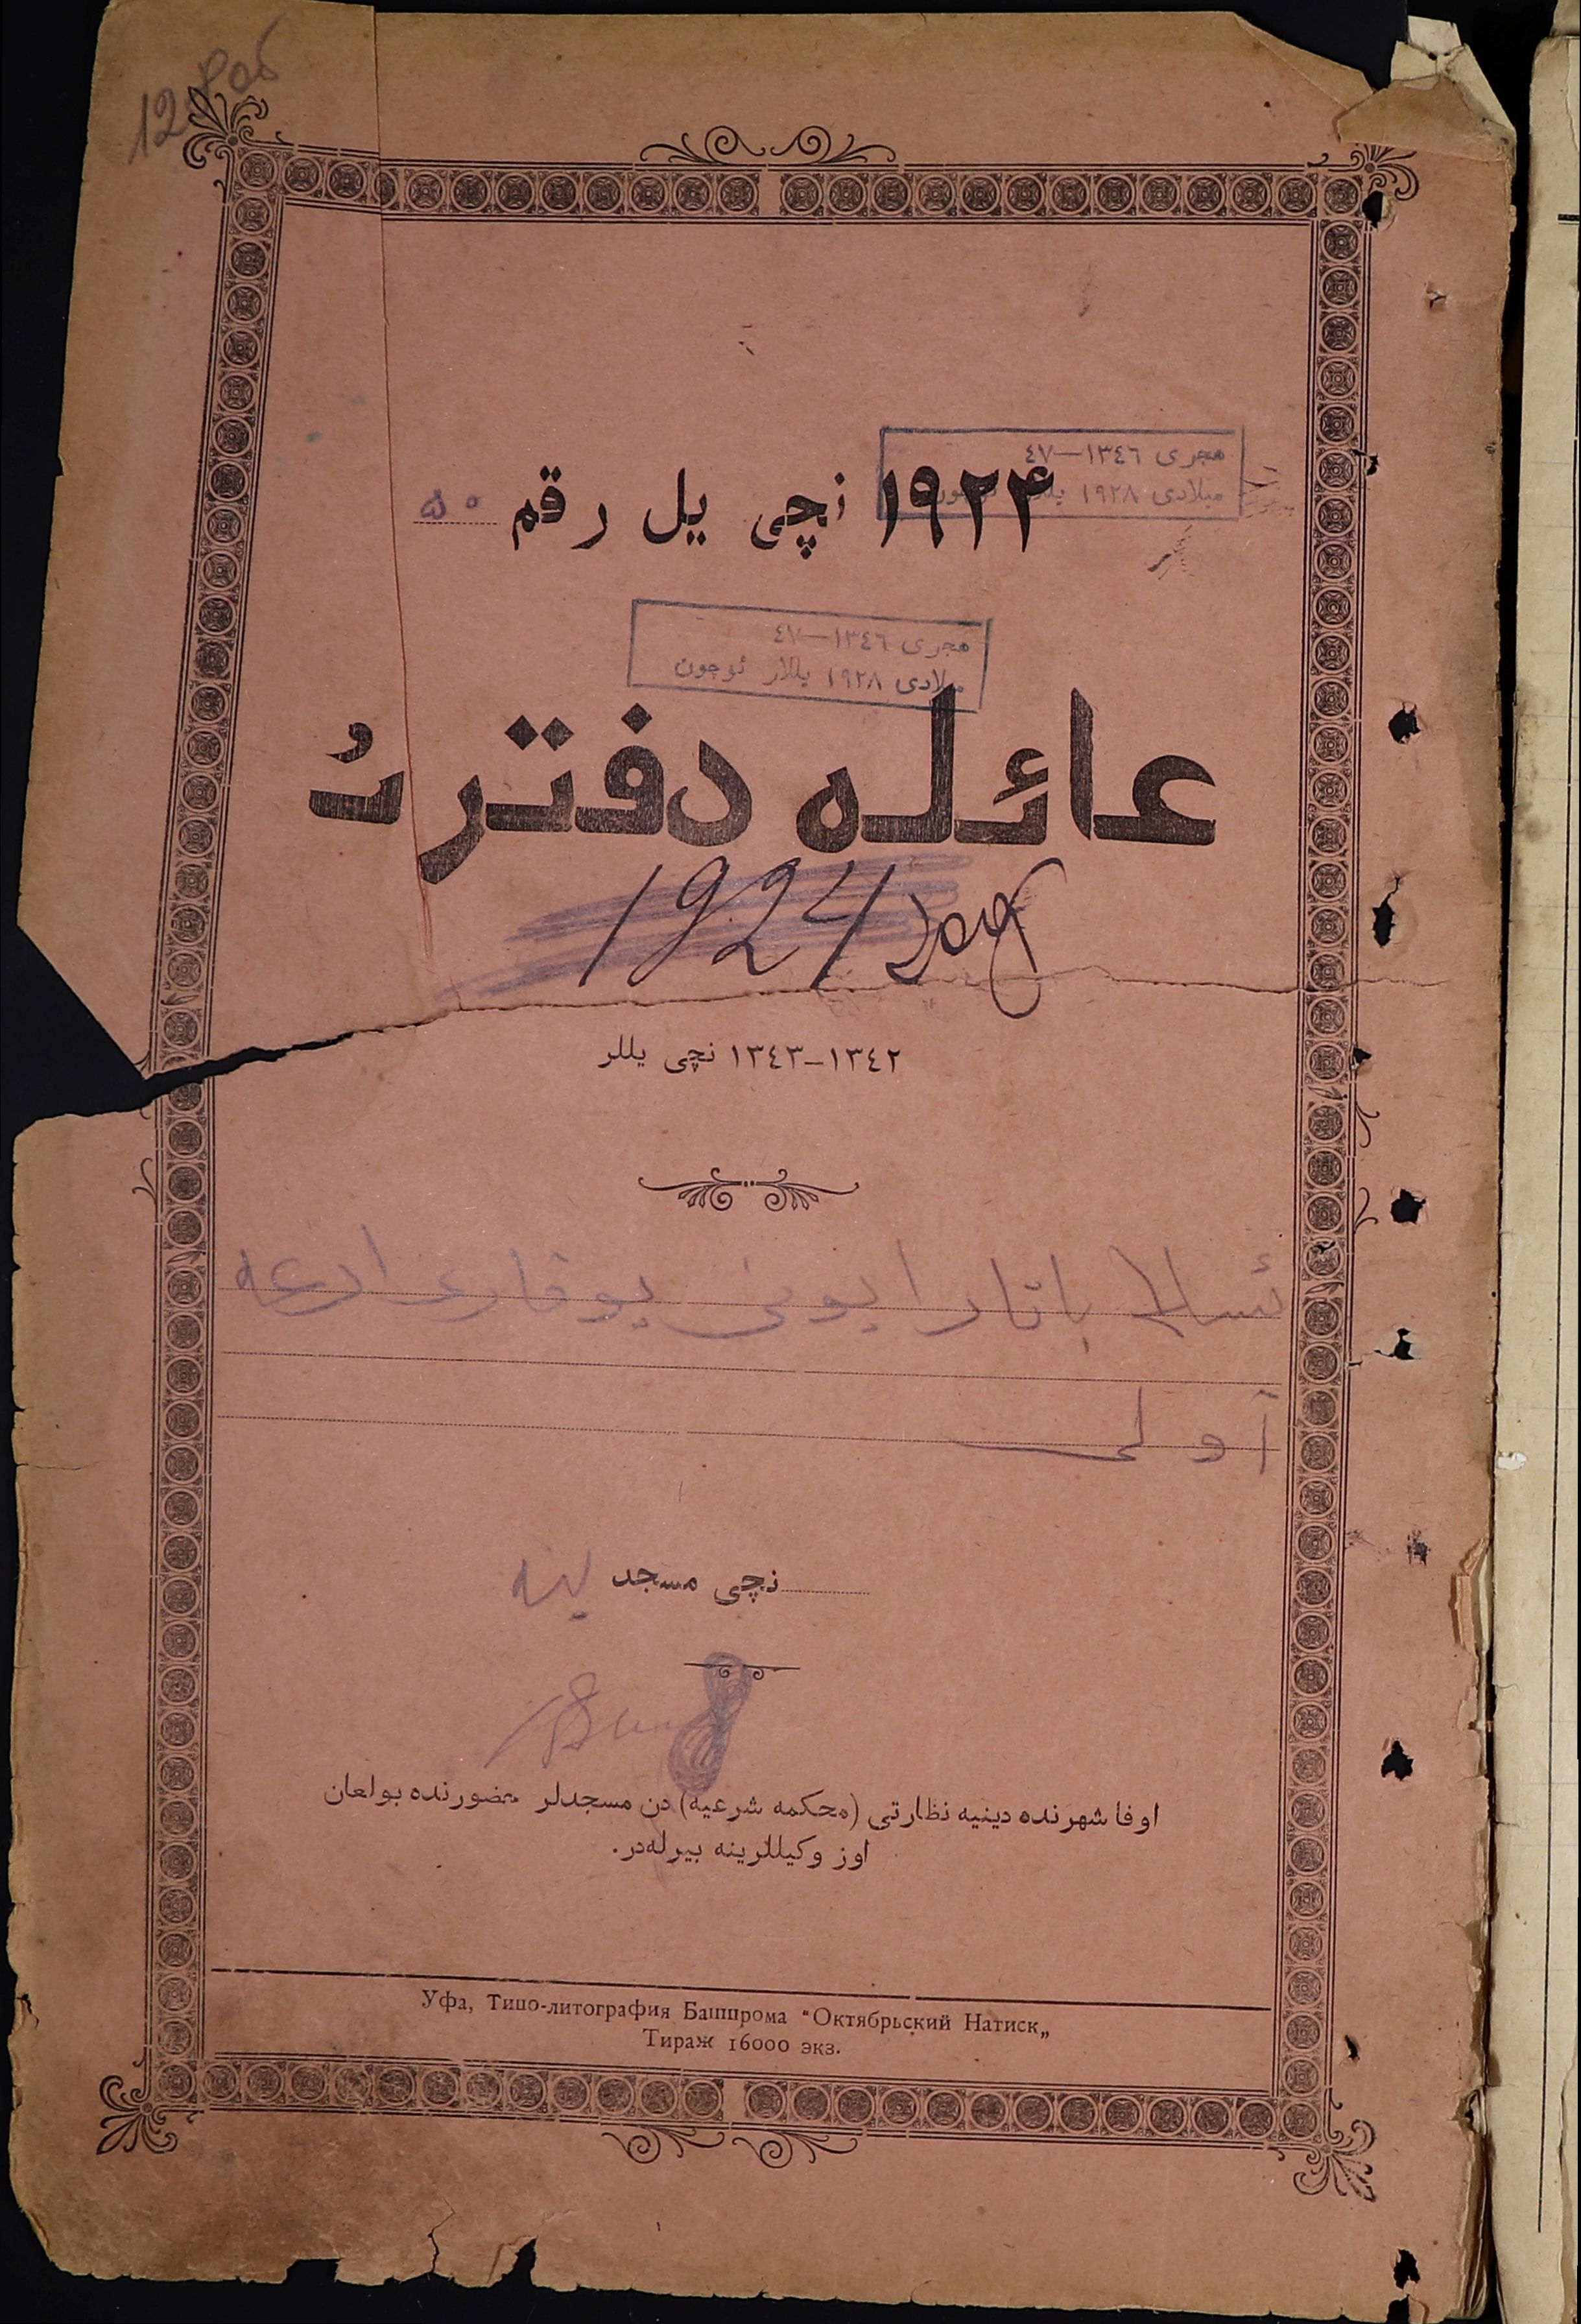 هجری ١٣٤٦—٤٧
میلادی ١٩٢٨
١٩٢۴ نچی یل رقم
هجری ١٣٤٦—٤٧
میلادی ١٩٢٨ یللار ئوچون
عائله دفترئ
1924 год
١٣٤٢–١٣٤٣ نچی یللر
یوقاری
آولی
نچی مسجد
اوفا شهرنده دینیه نظارتی (محکمه شرعیه) دن مسجدلر حضورنده بولعان
اوز وکیللرینه بیرله‌در.
Уфа, Типо-литография Башпрома “Октябрьский Натиск„
Тираж 16000 экз.